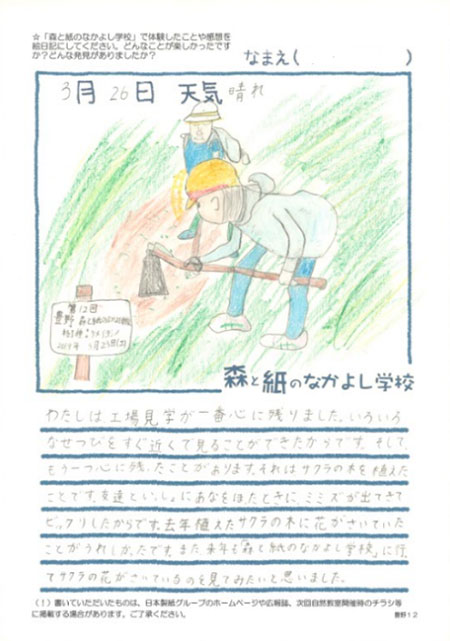 ☆「森と紙のなかよし学校」で体験したことや感想を
絵日記にしてください。どんなことが楽しかったです
か？どんな発見がありましたか？
なまえ(　　　　　)
3月 26日 天気 晴れ
第12回
豊野
森と紙のなかよし学校
森と紙のなかよし学校
わたしは工場見学が一番心に残りました。いろいろ
なせつびをすぐ近くで見ることができたからです。そして、
もう一つ心に残ったことがあります。それはサクラの木を植えた
ことです。友達といっしょにあなをほったときに、ミミズが出てきて
ビックリしたからです。去年植えたサクラの木に花がさいていた
ことがうれしかったです。また、来年も「森と紙のなかよし学校」に行っ
てサクラの花がさいているのを見てみたいと思いました。
（！）書いていただいたものは、日本製紙グループのホームページや広報誌、次回自然教室開催時のチラシ等
に掲載する場合があります。ご了承ください。
豊野12